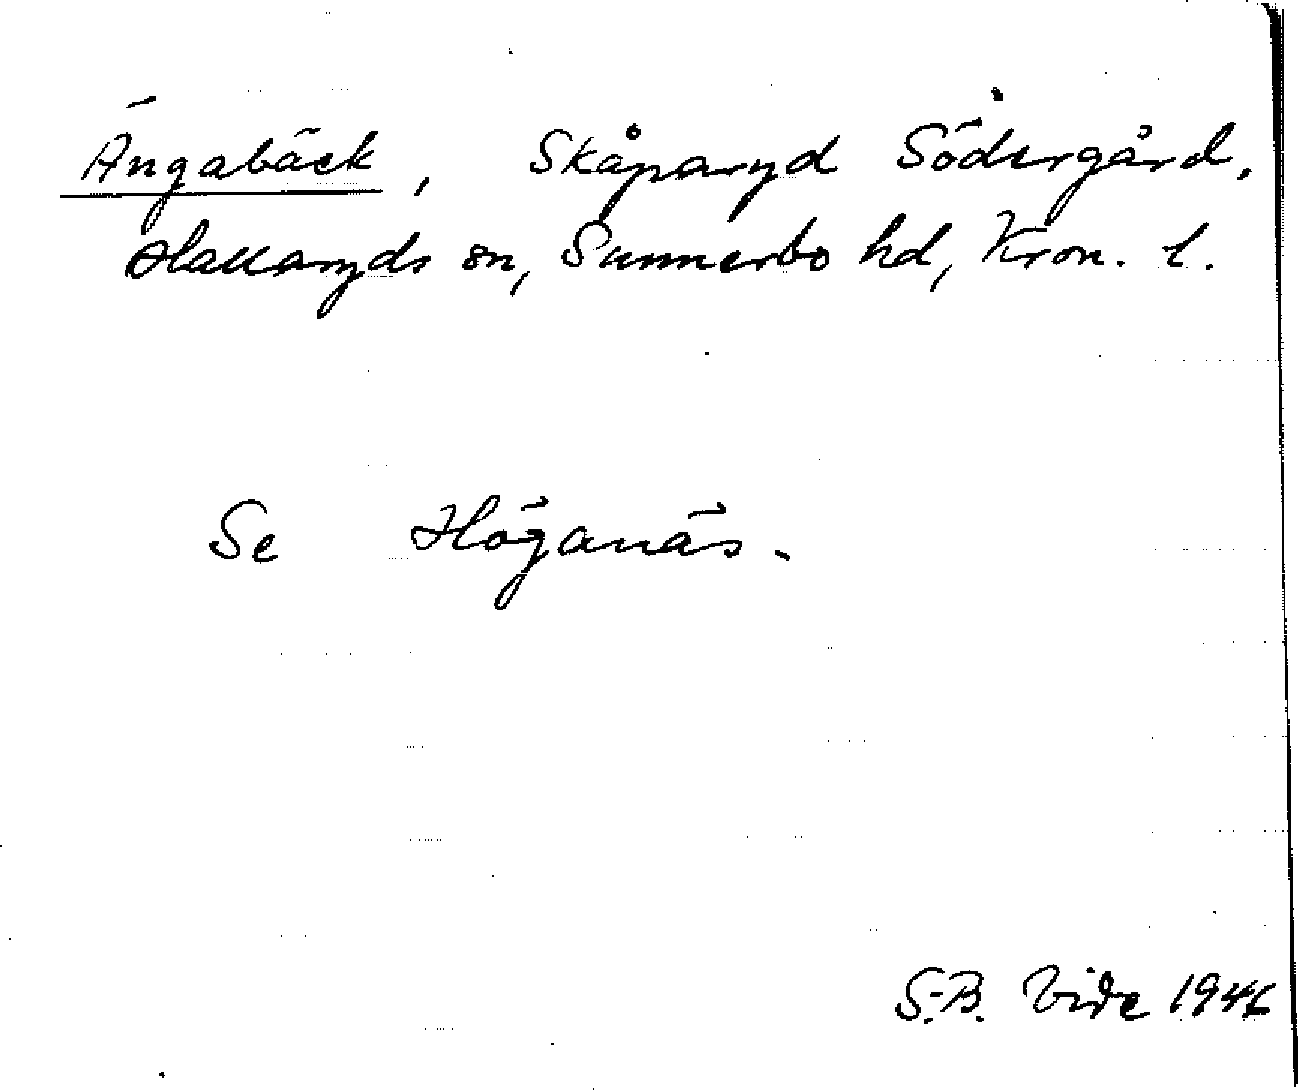 Ängabäck, Skåparyd Södergård,
Hallaryds sn, Sunnerbo hd, Kron. l.
Se Höganäs.
S.B. Vide 1946